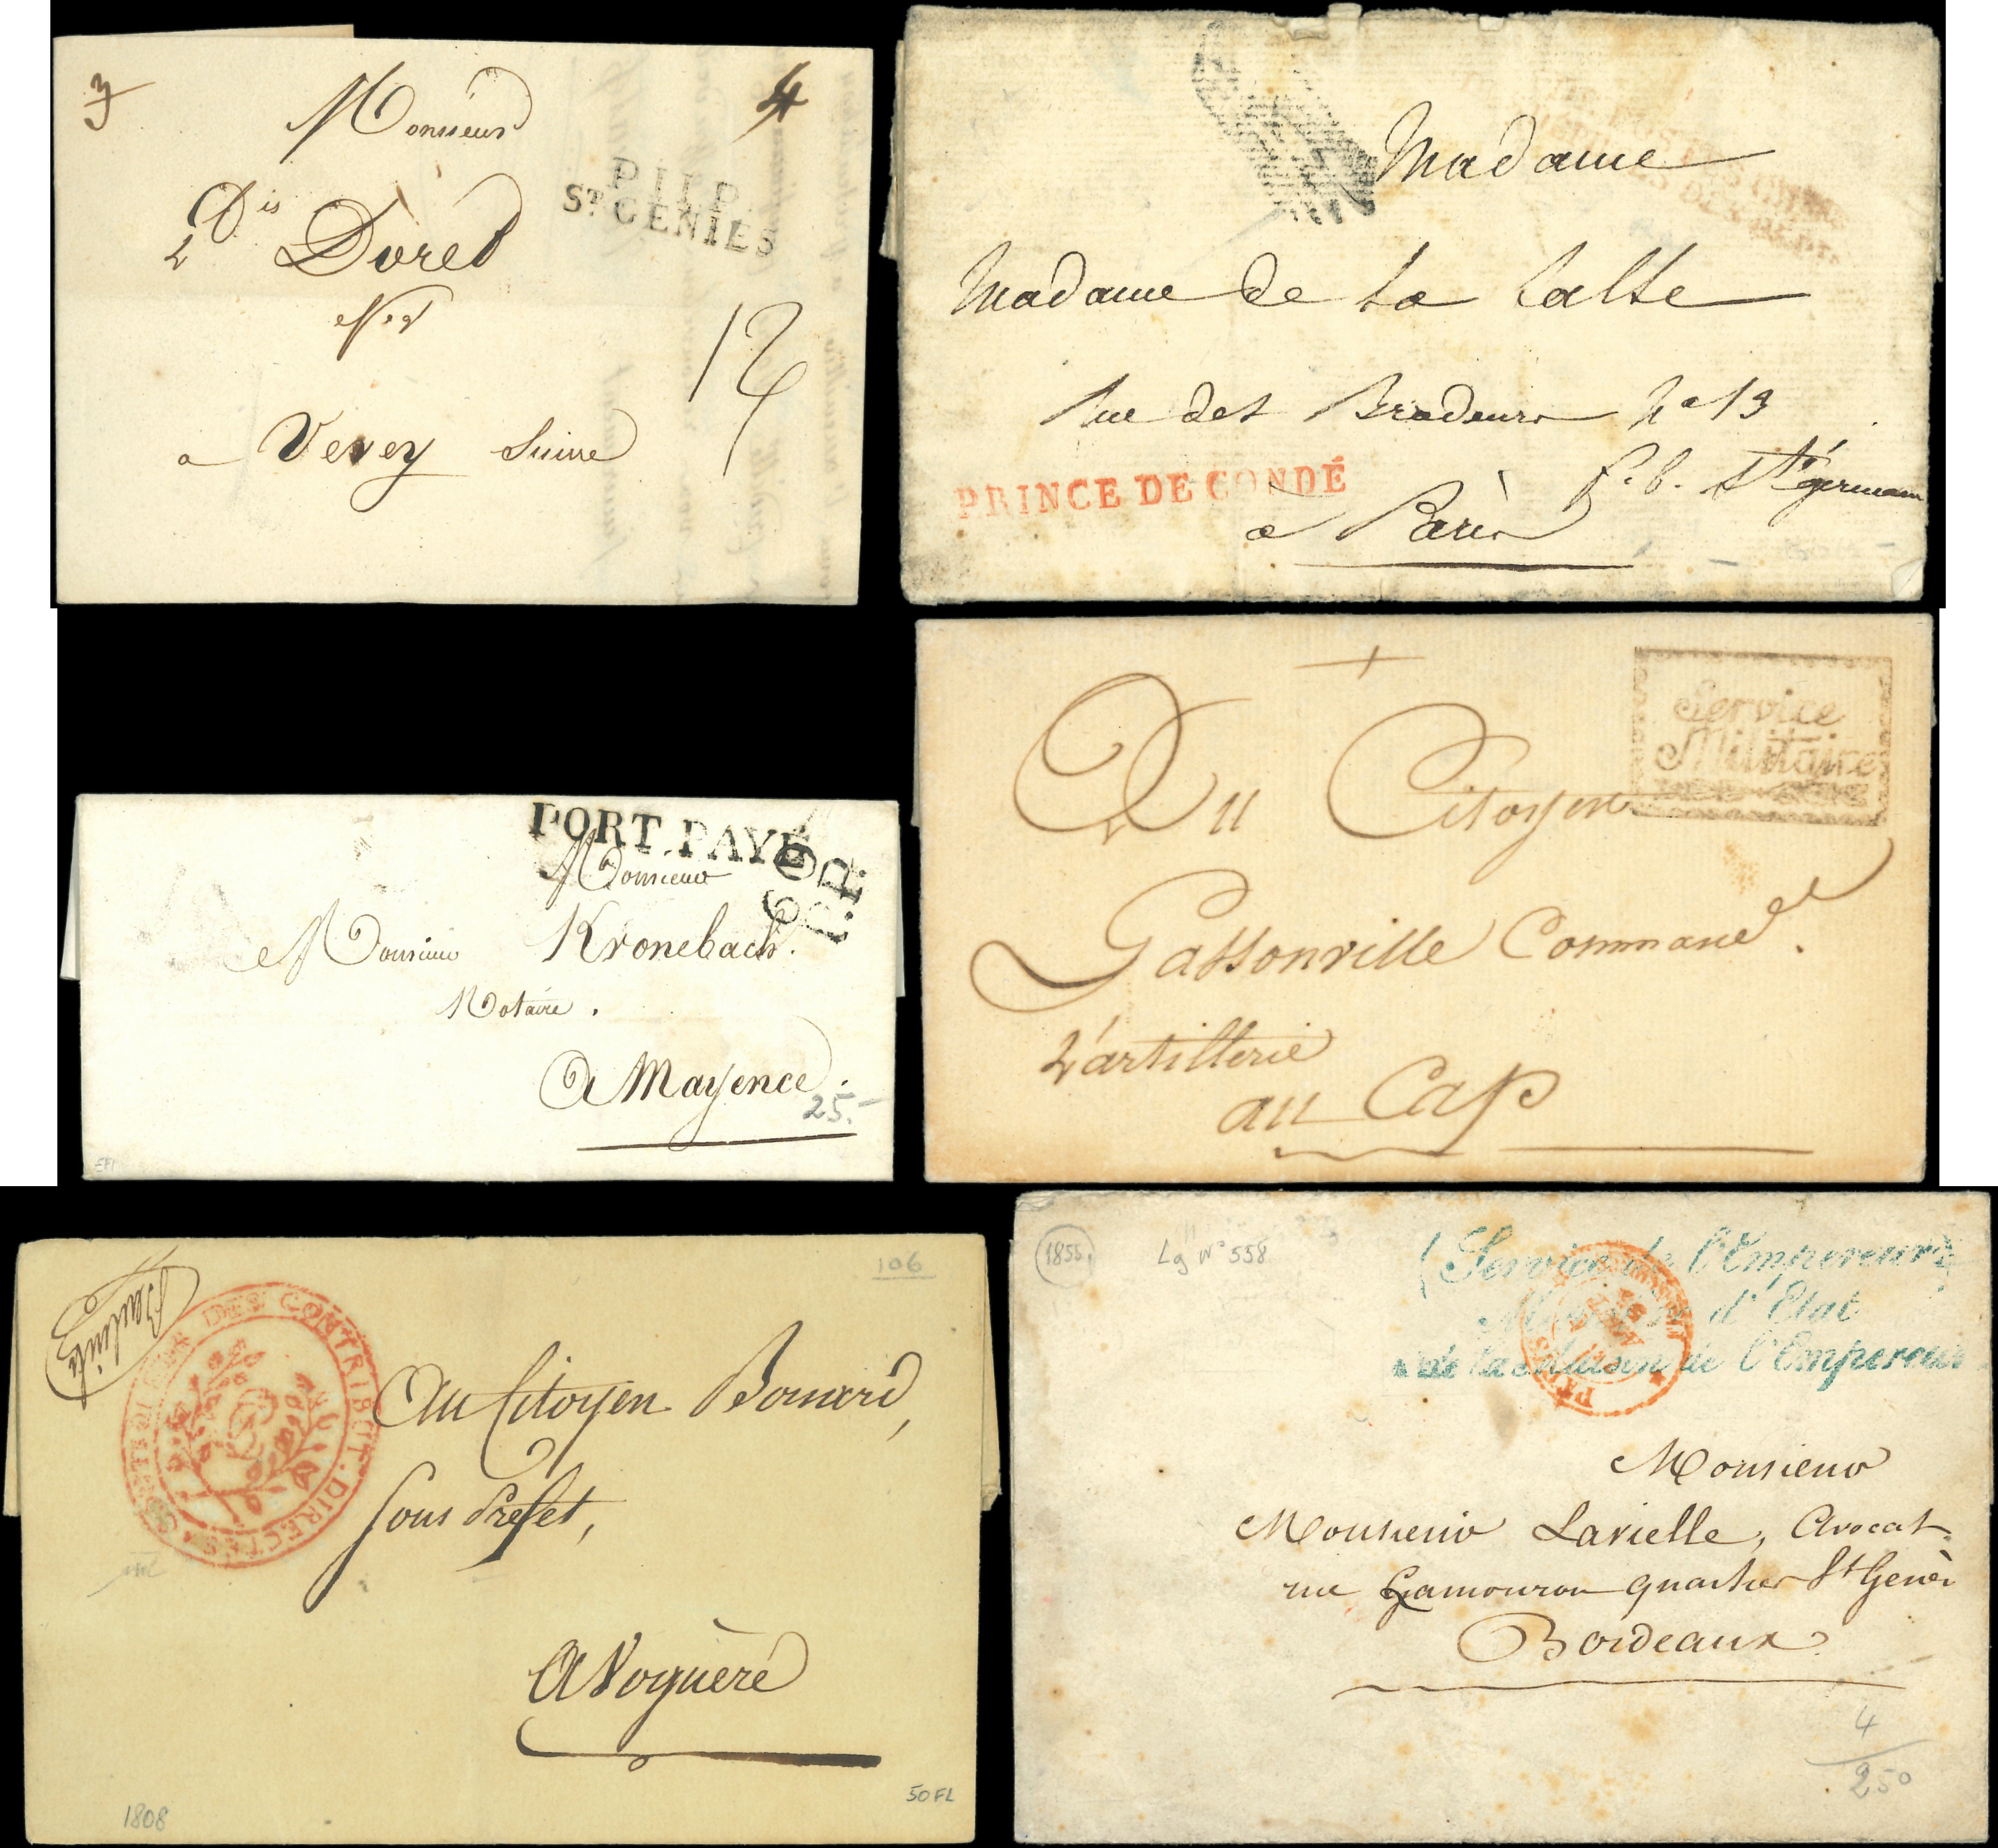 3
4
Monsieur
P.11.P.
ST GENIES
Dis Doret
12
a Vevey Suisse
Madame
Madame de La Salle
Rue des Brodeurs No 13
f. b. St germain
PRINCE DE CONDÉ
a Paris
PORT PAYÉ
P.P.
Monsieur
Monsieur Kronebach.
Notaire.
A Mayence.
25.-
Service
Militaire
Au Citoyen
Gassonville Command.
d'artillerie
au Cap
106
DES CONTRIBUT. DIRECTES
Au Citoyen
Sous Prefet,
A Voguère
50FL
1808
1855
Lg No 558
(Service de l'Empereur)
d'Etat
de la Maison de l'Empereur
Monsieur
Monsieur Lavielle, Avocat
rue quartier St Genès
Bordeaux
4
250